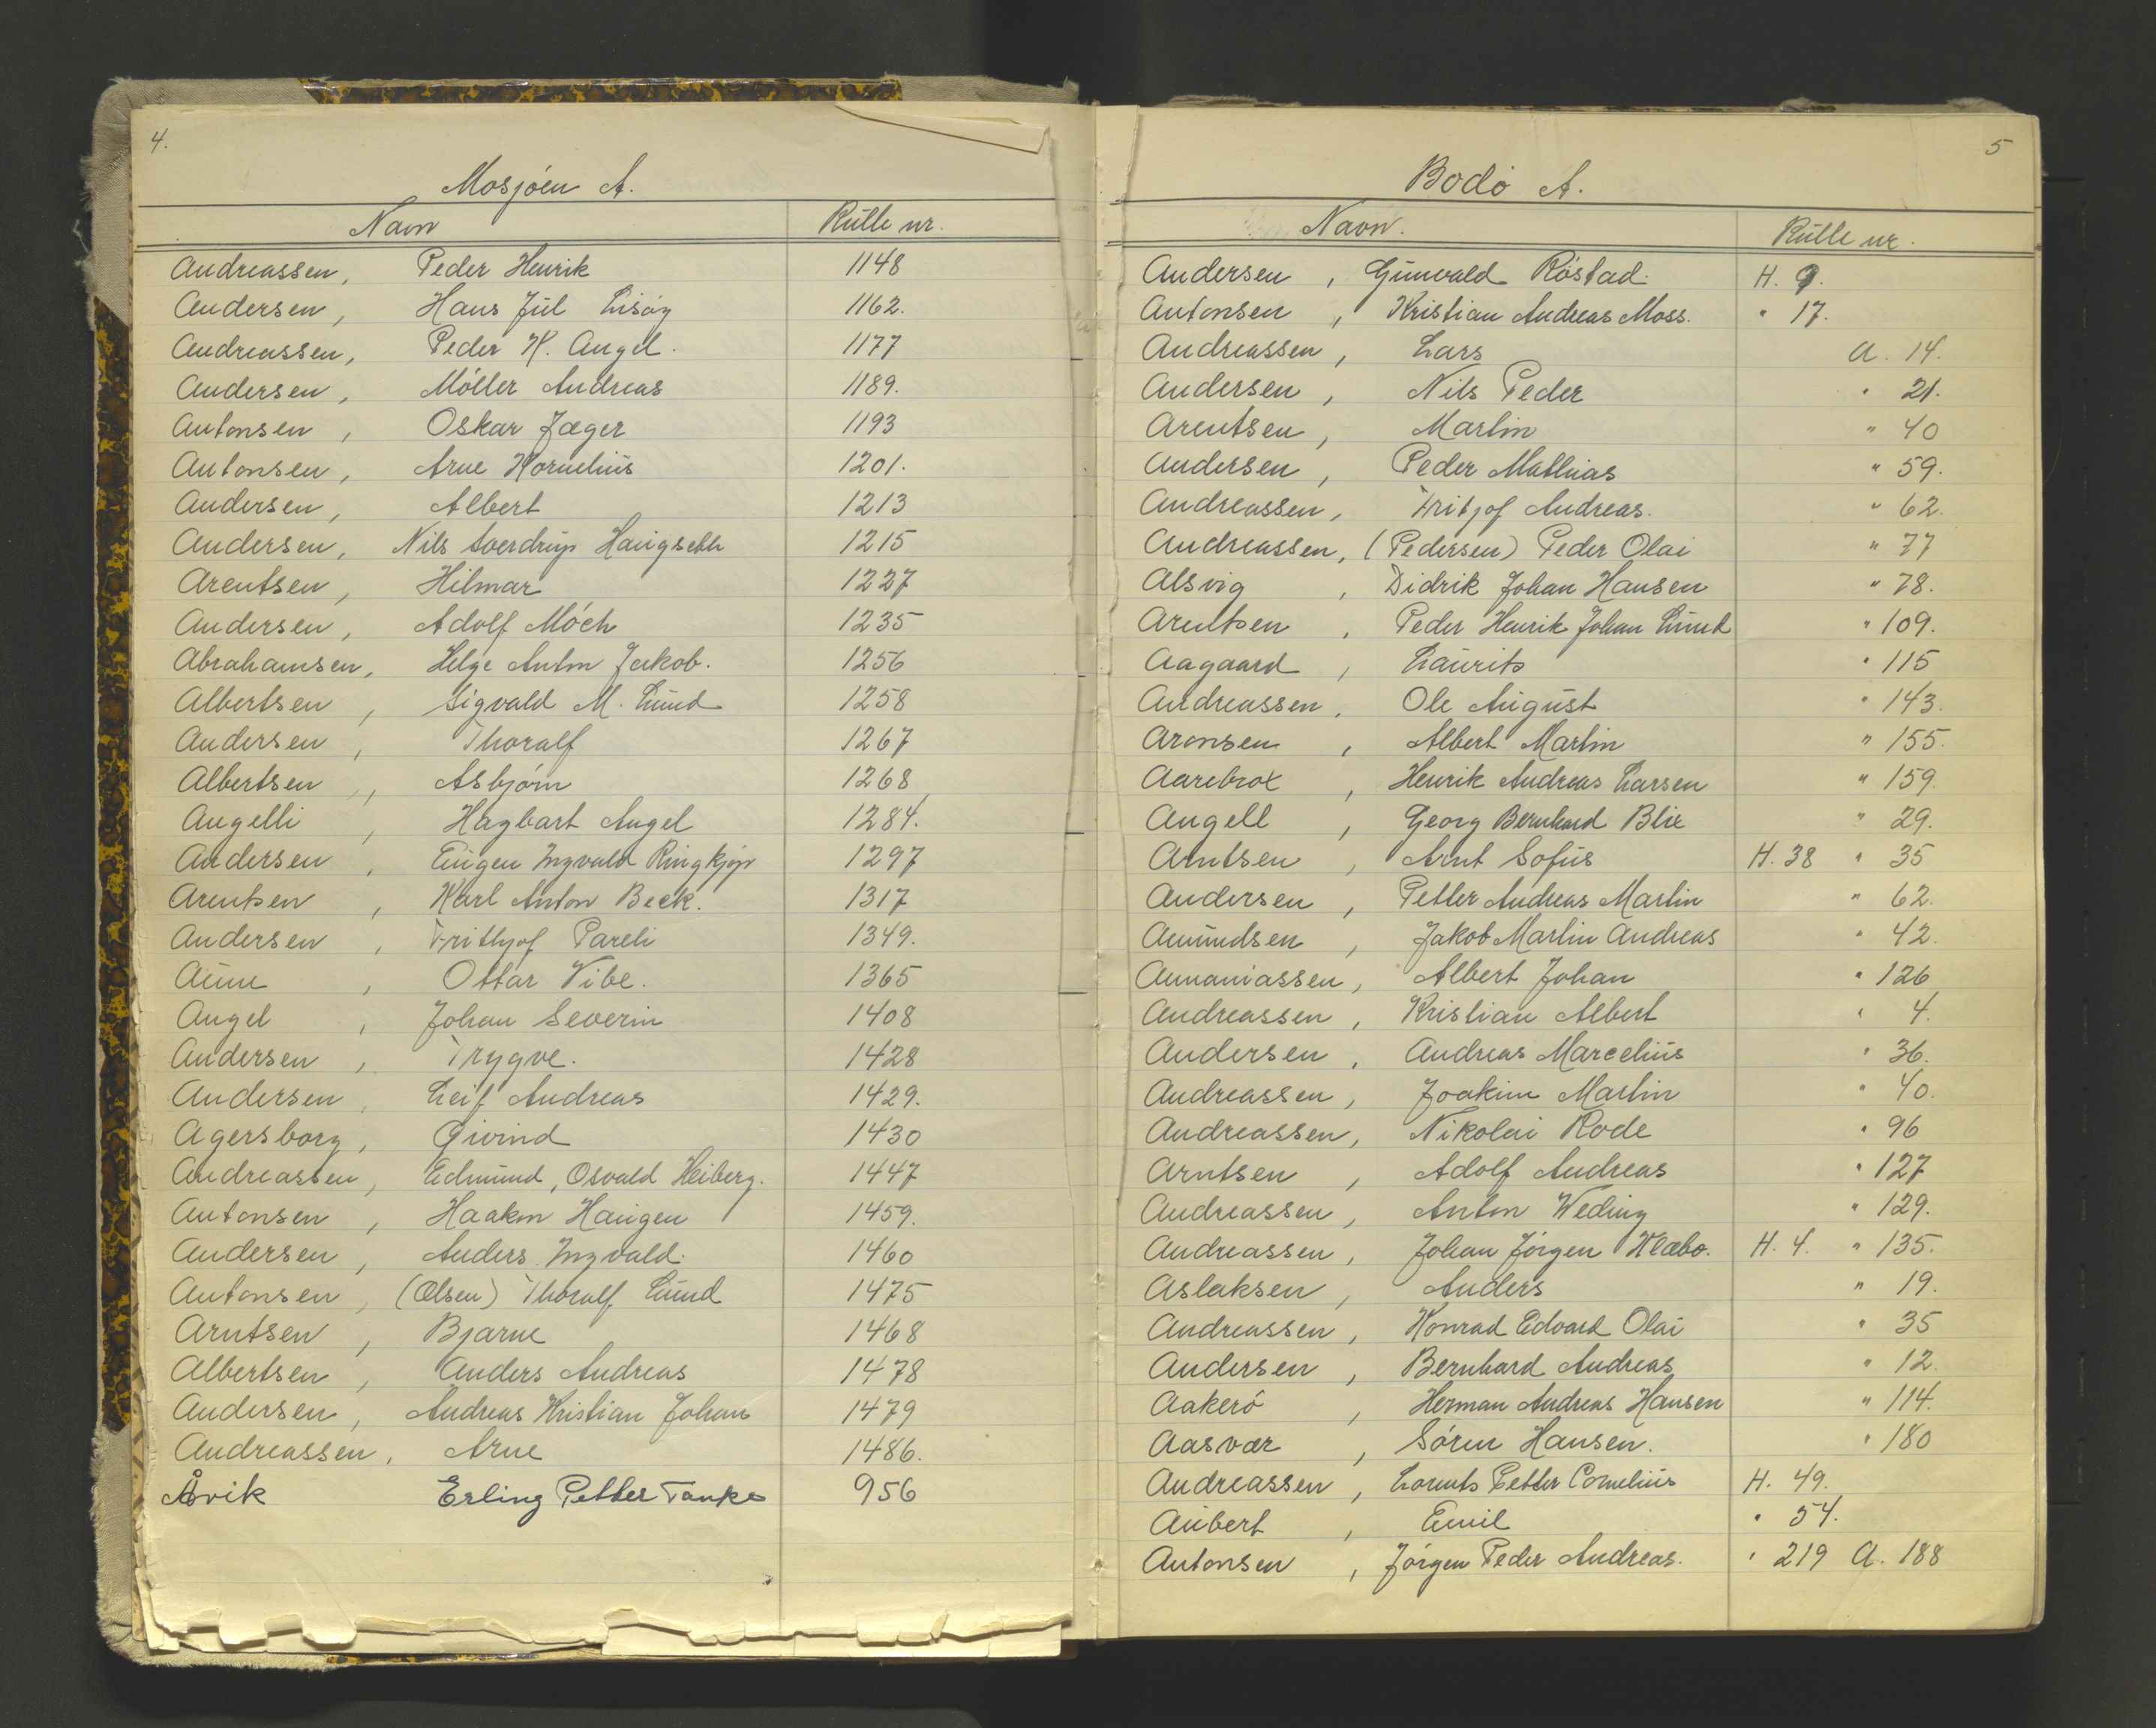 4.
Mosjöen A.
Navn Rulle nr.
Andreassen, Peder Henrik 1148
Andersen, Hans Jul Lisöy 1162.
Andreassen, Peder H. Angel. 1177
Andersen, Möller Andreas 1189.
Antonsen, Oskar Jæger 1193
Antonsen, Arne Kornelius 1201.
Andersen, Albert 1213
Andersen, Nils Sverdrup Haugseth 1215
Arentsen, Hilmar 1227
Andersen, Adolf Möch 1235
Abrahamsen, Helge Anton Jakob. 1256
Albertsen, Sigvald M. Lund 1258
Andersen, Thoralf 1267
Albertsen, Asbjörn 1268
Angelli, Hagbart Angel 1284.
Andersen, Eugen Ingvald Ringkjöp 1297
Arentsen, Karl Anton Beck. 1317
Andersen, Frithjof Pareli 1349.
Aune, Ottar Vibe. 1365
Angel, Johan Severin 1408
Andersen, Trygve. 1428
Andersen, Leif Andreas 1429.
Agersborg, Öivind 1430
Andreassen, Edmund, Osvald Heiberg. 1447
Antonsen, Haakon Haugen 1459.
Andersen, Anders Ingvald. 1460
Antonsen, (Olsen) Thoralf Lund 1475
Arntsen, Bjarne 1468
Albertsen, Anders Andreas 1478
Andersen, Andreas Kristian Johan 1479
Andreassen, Arne 1486.
Åvik Erling Petter Tanke 956
5
Bodö A.
Navn. Rulle nr.
Andersen, Gunvald Röstad. H. 9.
Antonsen, Kristian Andreas Moss. " 17.
Andreassen, Lars A. 14.
Andersen, Nils Peder " 21.
Arentsen, Martin " 40
Andersen, Peder Mathias " 59.
Andreassen, Fritjof Andreas. " 62.
Andreassen, (Pedersen) Peder Olai " 77
Alsvig, Didrik Johan Hansen " 78.
Arentsen, Peder Henrik Johan Lund " 109.
Aagaard, Laurits " 115
Andreassen, Ole August " 143.
Aronsen, Albert Martin " 155.
Aarebrot, Henrik Andreas Larsen " 159.
Angell, Georg Bernhard Blix " 29.
Arntsen, Arnt Sofus H. 38 " 35
Andersen, Petter Andreas Martin " 62.
Amundsen, Jakob Martin Andreas " 42.
Annaniassen, Albert Johan " 126
Andreassen, Kristian Albert " 4.
Andersen, Andreas Marcelius " 36.
Andreassen, Joakim Martin " 40.
Andreassen, Nikolai Rode " 96
Arntsen, Adolf Andreas " 127
Andreassen, Anton Weding " 129.
Andreassen, Johan Jörgen Klæbo. H. 4. " 135.
Aslaksen, Anders " 19.
Andreassen, Konrad Edvard Olai " 35
Andersen, Bernhard Andreas " 12.
Aakerö, Herman Andreas Hansen " 114.
Aasvær, Sören Hansen. " 180
Andreassen, Lorents Petter Cornelius H. 49.
Aubert, Emil " 54.
Antonsen, Jörgen Peder Andreas. " 219 A. 188